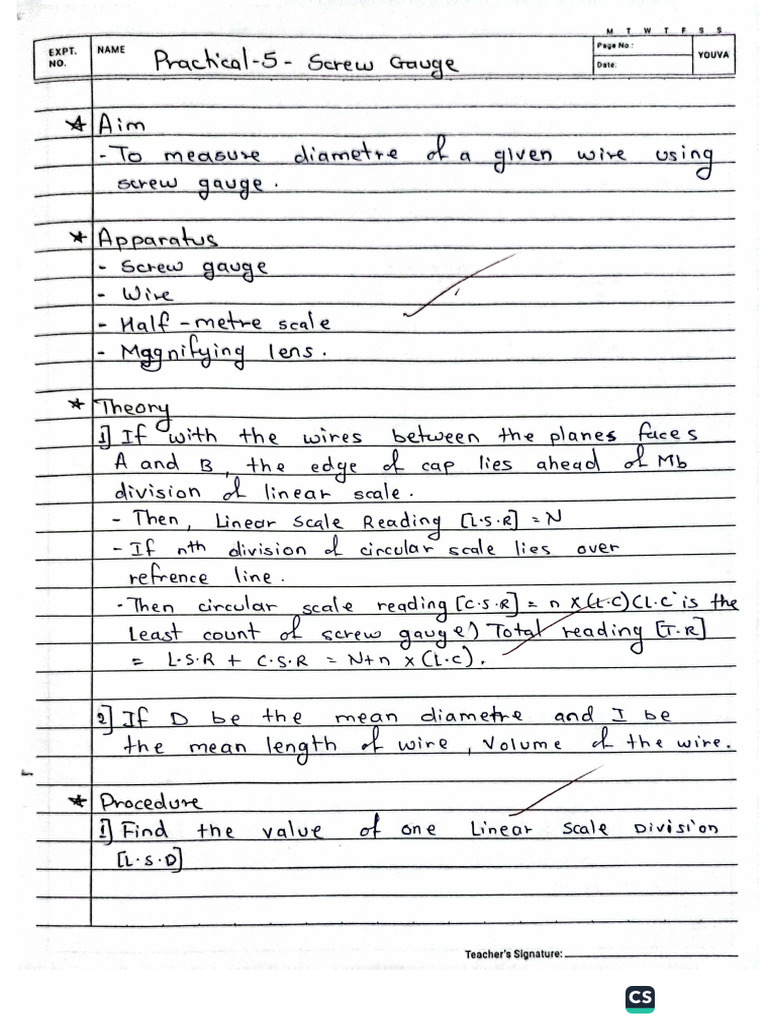 M T W T F S S
EXPT. NO.
NAME
Practical-5 - Screw Gauge
Page No.:
Date:
YOUVA
* Aim
- To measure diametre of a given wire using
screw gauge.
* Apparatus
- Screw gauge
- Wire
- Half-metre scale
- Magnifying lens.
* Theory
1] If with the wires between the planes faces
A and B, the edge of cap lies ahead of Mb
division of linear scale.
- Then, Linear Scale Reading [L.S.R] = N
- If nth division of circular scale lies over
refrence line.
- Then circular scale reading [C.S.R] = n x (L.C) (L.C is the
Least count of screw gauge) Total reading [T.R]
= L.S.R + C.S.R = N+n x (L.C).
2] If D be the mean diametre and I be
the mean length of wire, Volume of the wire.
* Procedure
1] Find the value of one Linear Scale Division
[L.S.D]
Teacher's Signature:
CS